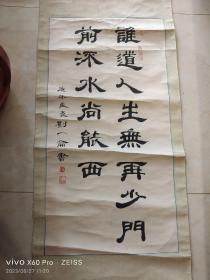 誰道人生無再少門
前流水尚能西
劉一舍書
vivo X60 Pro · ZEISS
2023/08/27 11:20